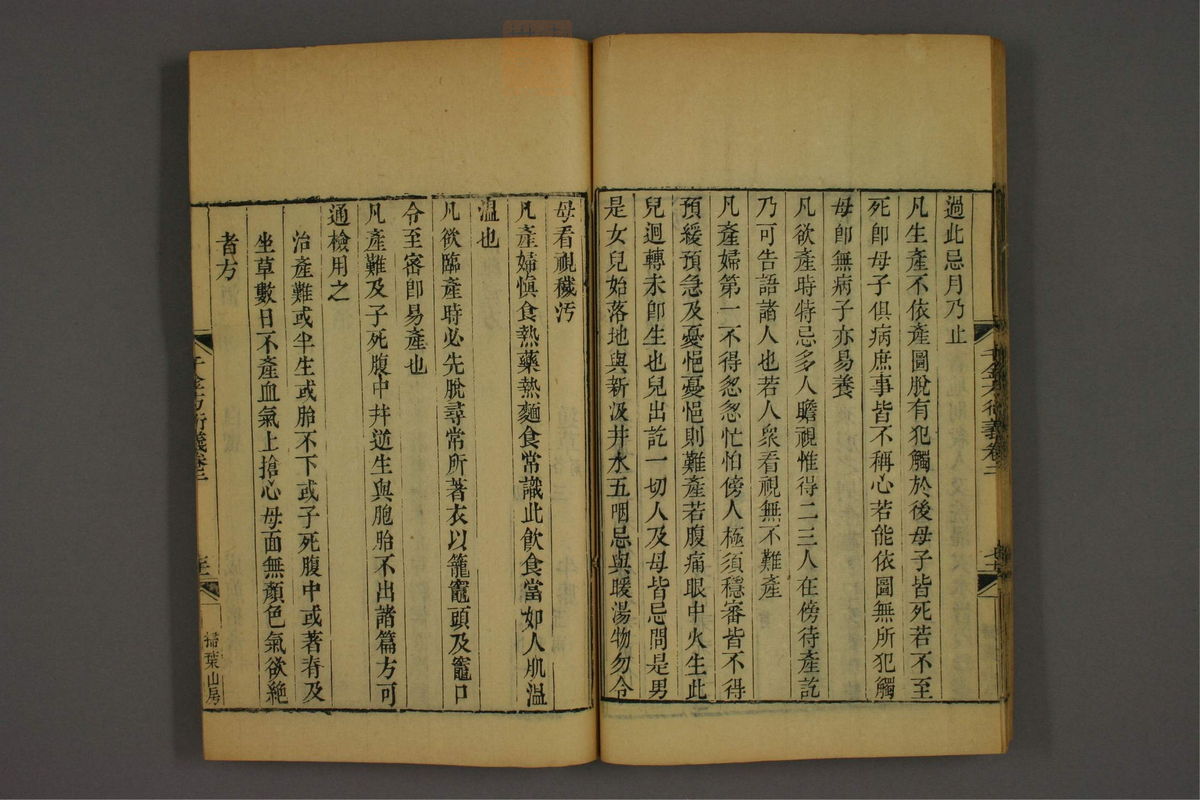 過此忌月乃止
凡生產不依產圖脫有犯觸於後母子皆死若不至
死卽母子俱病庶事皆不稱心若能依圖無所犯觸
母卽無病子亦易養
凡欲產時特忌多人瞻視惟得二三人在傍待產訖
乃可告語諸人也若人衆看視無不難產
凡產婦第一不得忩忩忙怕傍人極須穩審皆不得
預緩預急及憂悒憂悒則難產若腹痛眼中火生此
兒迴轉未卽生也兒出訖一切人及母皆忌問是男
是女兒始落地與新汲井水五咽忌與暖湯物勿令
母看視穢汚
凡產婦愼食熱藥熱麵食常識此飮食當如人肌溫
溫也
凡欲臨產時必先脫尋常所著衣以籠竈頭及竈口
令至密卽易產也
凡產難及子死腹中幷逆生與胞胎不出諸篇方可
通檢用之
治產難或半生或胎不下或子死腹中或著脊及
坐草數日不產血氣上搶心母面無顏色氣欲絕
者方
千金方衍義卷二
掃葉山房